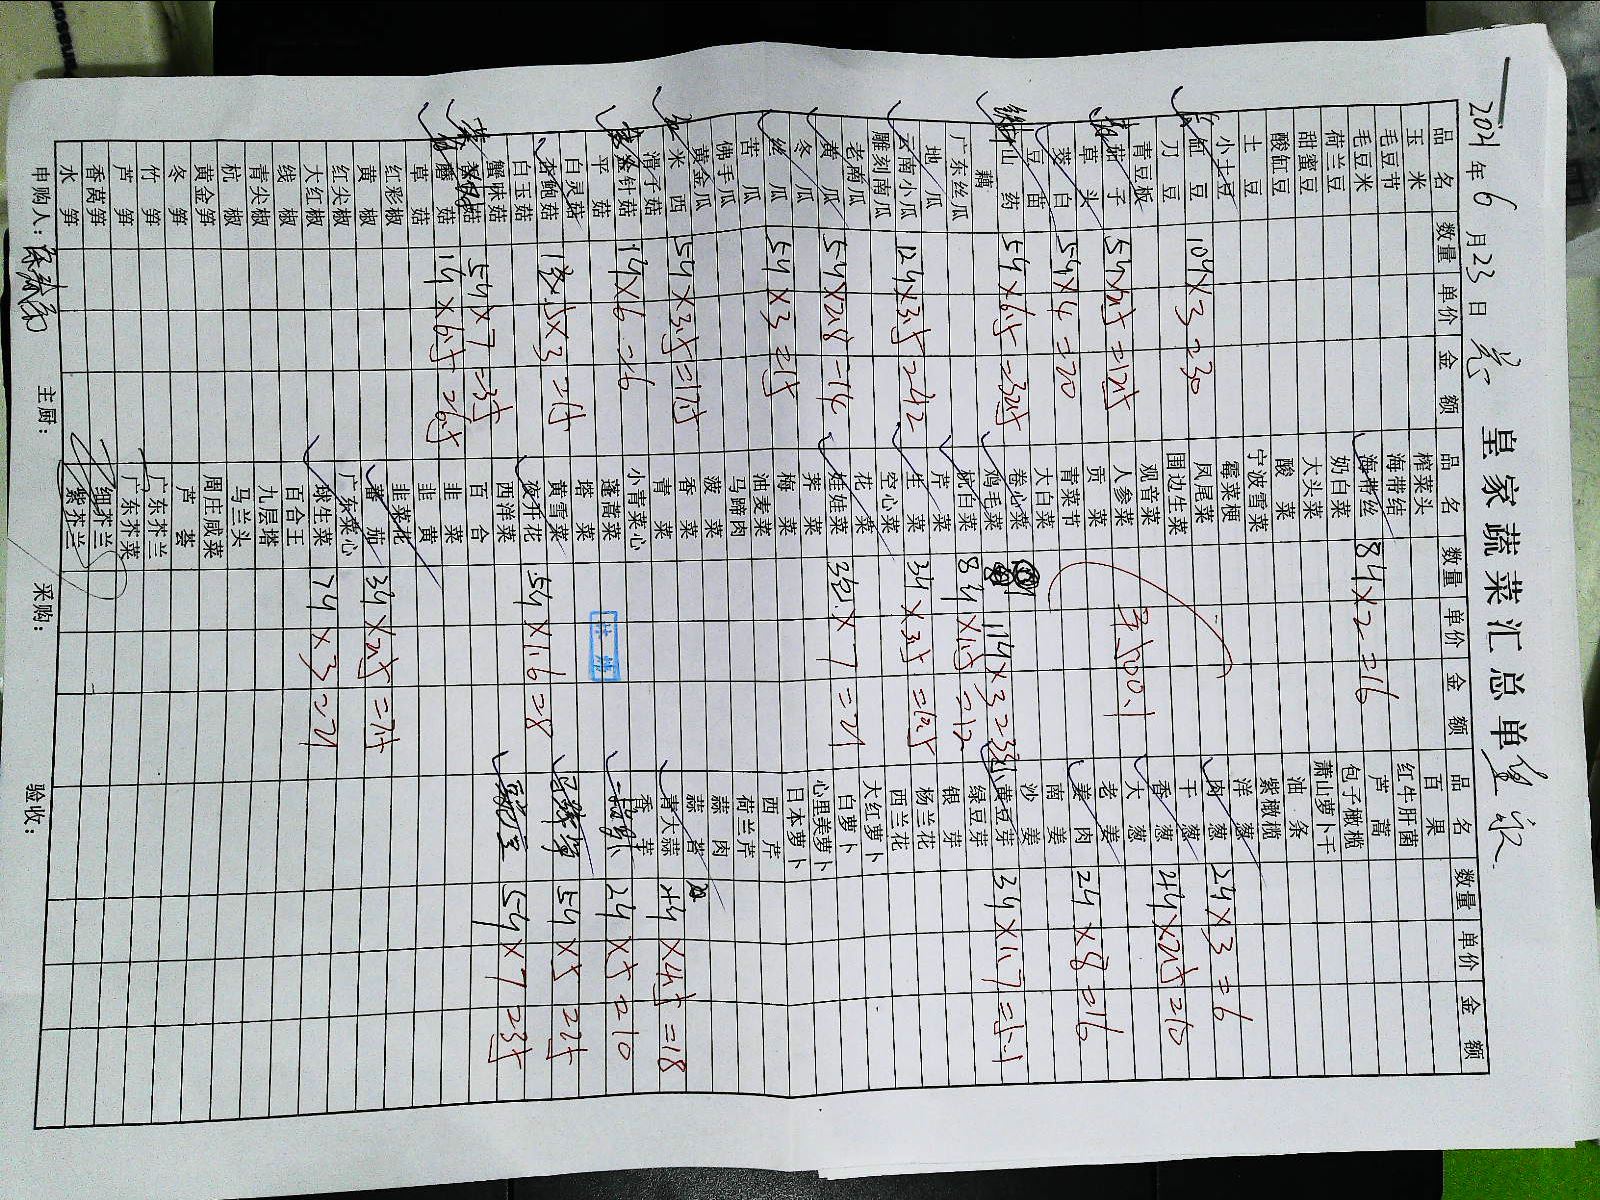 2021年6月23日
皇家蔬菜汇总单
品名 数量 单价 金额 品名 数量 单价 金额 品名 数量 单价 金额
玉米 榨菜头 百果
毛豆节 海带结 红牛肝菌
毛豆米 海带丝 8斤×2=16 芦蒿
荷兰豆 奶白菜 包子橄榄
甜蜜豆 大头菜 萧山萝卜干
酸缸豆 酸菜 油条
土豆 宁波雪菜 紫橄榄
小土豆 霉菜梗 洋葱
缸豆 10斤×3=30 凤尾菜 肉葱 2斤×3=6
刀豆 围边生菜 干葱
青豆板 观音菜 香葱 4斤×2.5=10
茄子 5斤×2.5=12.5 人参菜 大葱
草头 贡菜 老姜
茭白 5斤×4=20 青菜节 姜肉 2斤×8=16
豆苗 大白菜 南姜
山药 5斤×6.5=32.5 卷心菜 沙姜
藕 鸡毛菜 11斤×3=33 黄豆芽 3斤×1.7=5.1
广东丝瓜 杭白菜 8斤×1.5=12 绿豆芽
地瓜 芹菜 银芽
云南小瓜 12斤×3.5=42 生菜 3斤×3.5=10.5 杨兰花
雕刻南瓜 空心菜 西兰花
老南瓜 花菜 大红萝卜
黄瓜 5斤×2.8=14 娃娃菜 3包×7=21 白萝卜
冬瓜 荠菜 心里美萝卜
丝瓜 5斤×3=15 梅菜 日本萝卜
苦瓜 油麦菜 西芹
佛手瓜 马蹄肉 荷兰芹
黄金瓜 菠菜 蒜肉
米西 5斤×3.5=17.5 香菜 蒜苔
滑子菇 青菜 青大蒜 4斤×4.5=18
金针菇 1斤×6=6 小青菜心 香芋
平菇 蓬蒿菜 2斤×5=10
白灵菇 塔菜
杏鲍菇 ×3= 黄雪菜 5斤×5=25
白玉菇 夜开花 5斤×1.6=8
蟹味菇 西洋菜 5斤×7=35
5斤×7=35 百合
蘑菇 1斤×6.5=6.5 韭菜
草菇 韭黄
红彩椒 韭菜花
黄椒 蕃茄 3斤×2.5=7.5
红尖椒 广东菜心
大红椒 球生菜 7斤×3=21
线椒 百合王
青尖椒 九层塔
杭椒 马兰头
黄金笋 周庄咸菜
冬笋 芦荟
竹笋 广东芥兰
芦笋 广东芥菜
香莴笋 细芥兰
水笋 紫芥兰
申购人: 主厨: 采购: 验收: